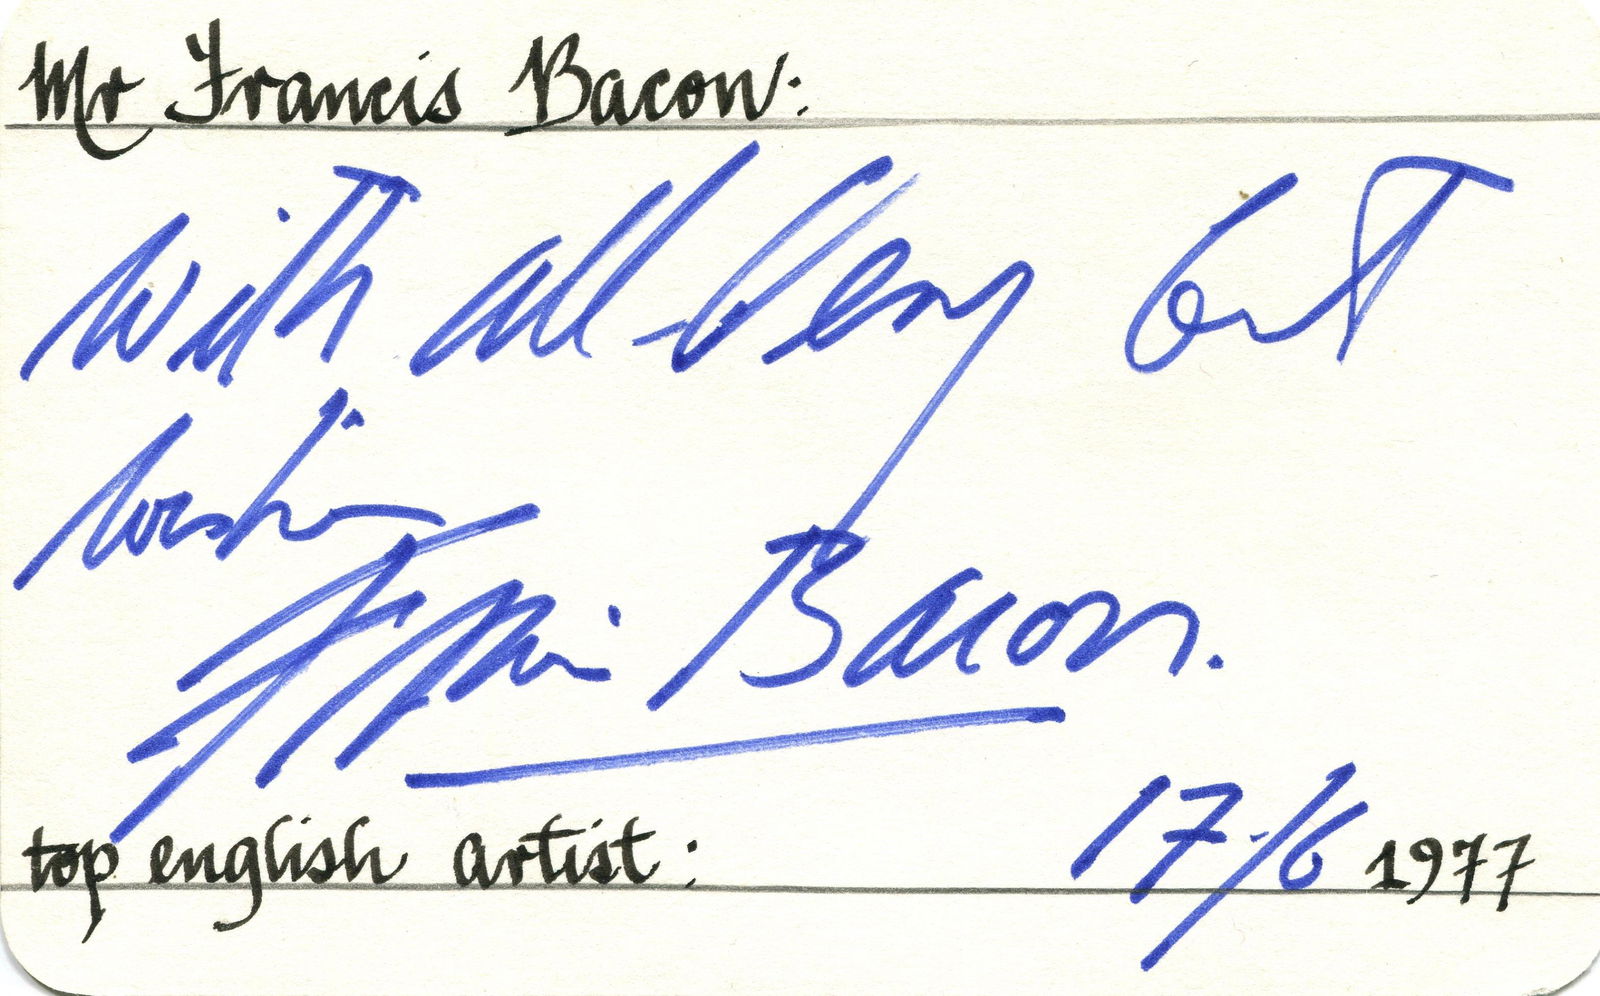 Mr Francis Bacon:
with all very best
wishes
Francis Bacon.
17/6 1977
top english artist: